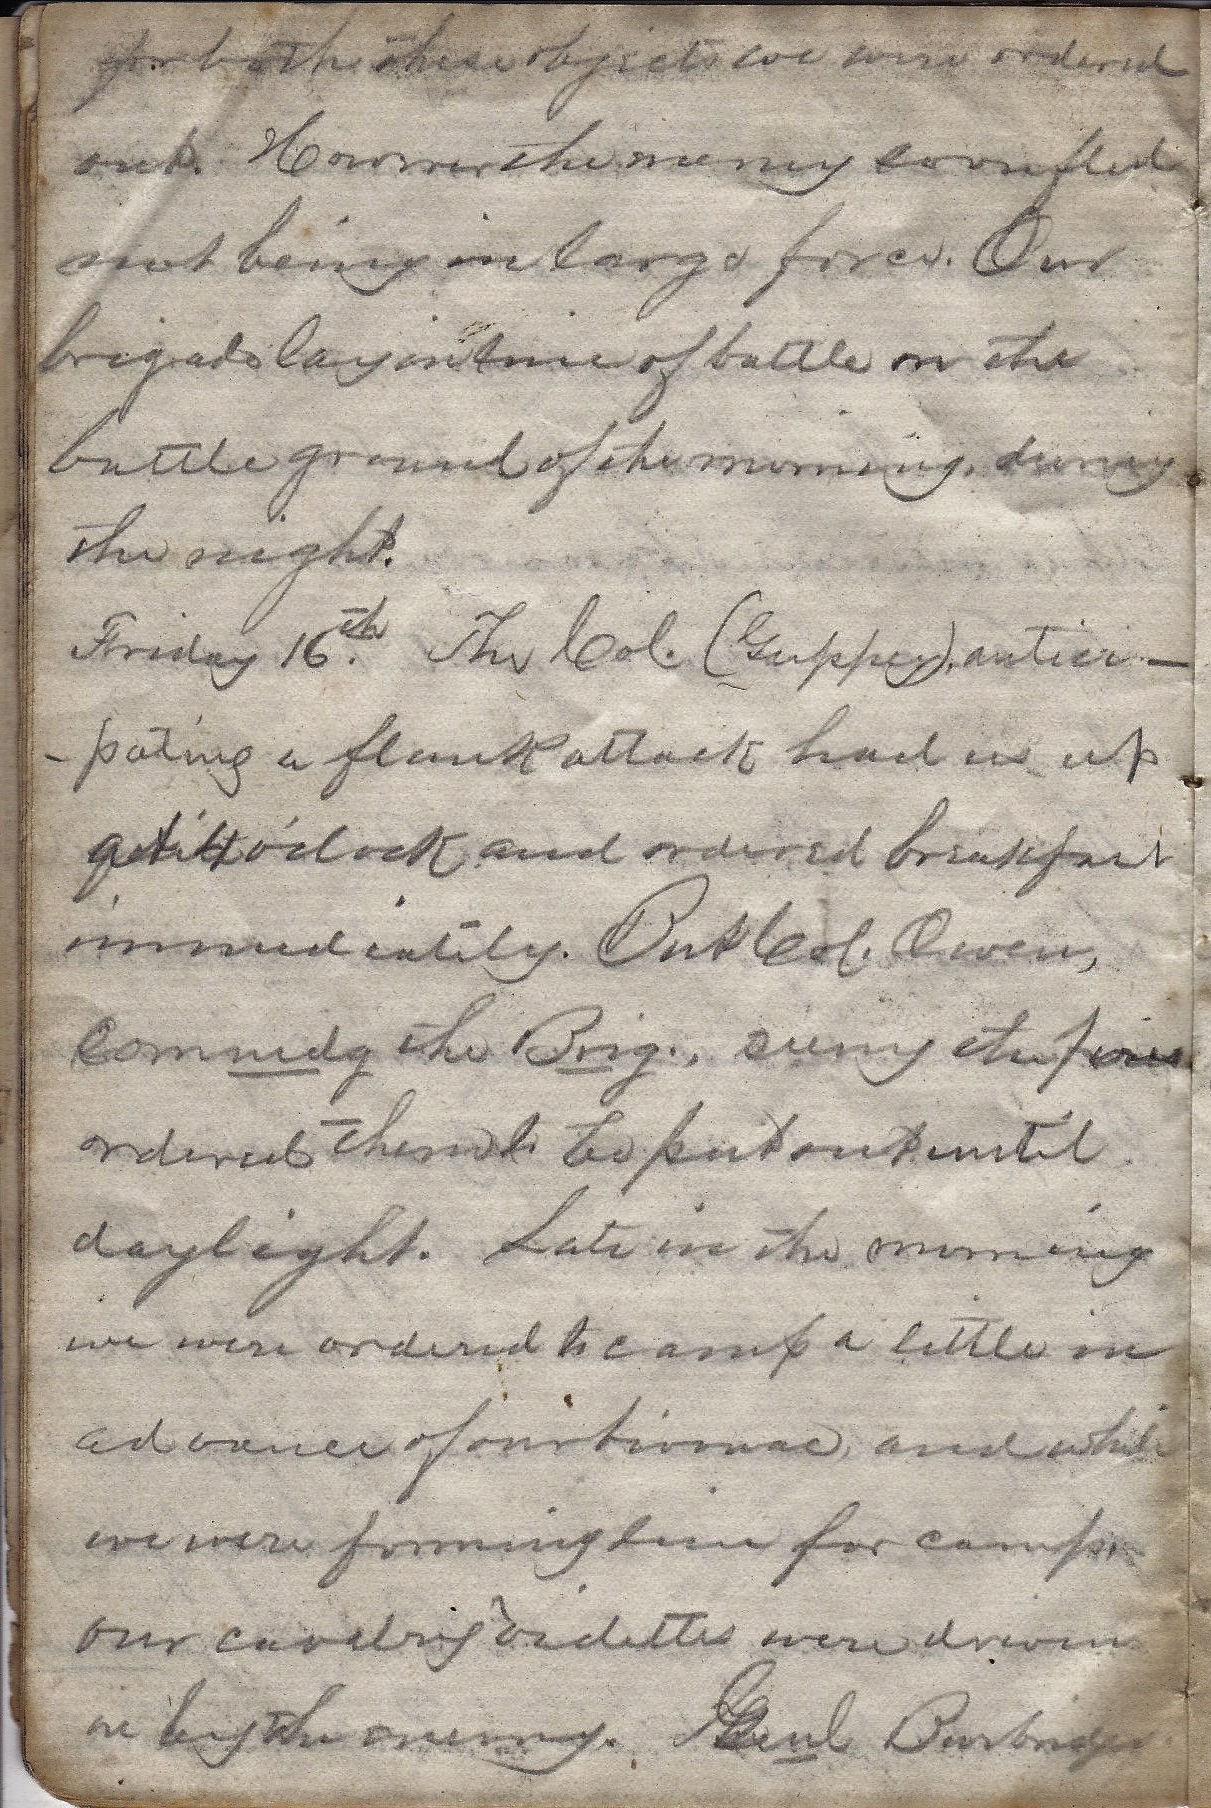 for both these objects we were ordered
out. However the enemy soon fled
not being in large force. Our
brigade lay in line of battle on the
battle ground of the morning, during
the night.
Friday 16th. The Col. (Guppey) antici-
-pating a flank attack had us up
at 4 o'clock and ordered breakfast
immediately. But Col. Owen,
commndg the Brig., seeing the fires
ordered them to be put out until
daylight. Late in the morning
we were ordered to camp a little in
advance of our bivouac, and while
we were forming line for camp
our cavalry videttes were driven
in by the enemy. Genl Burbridge